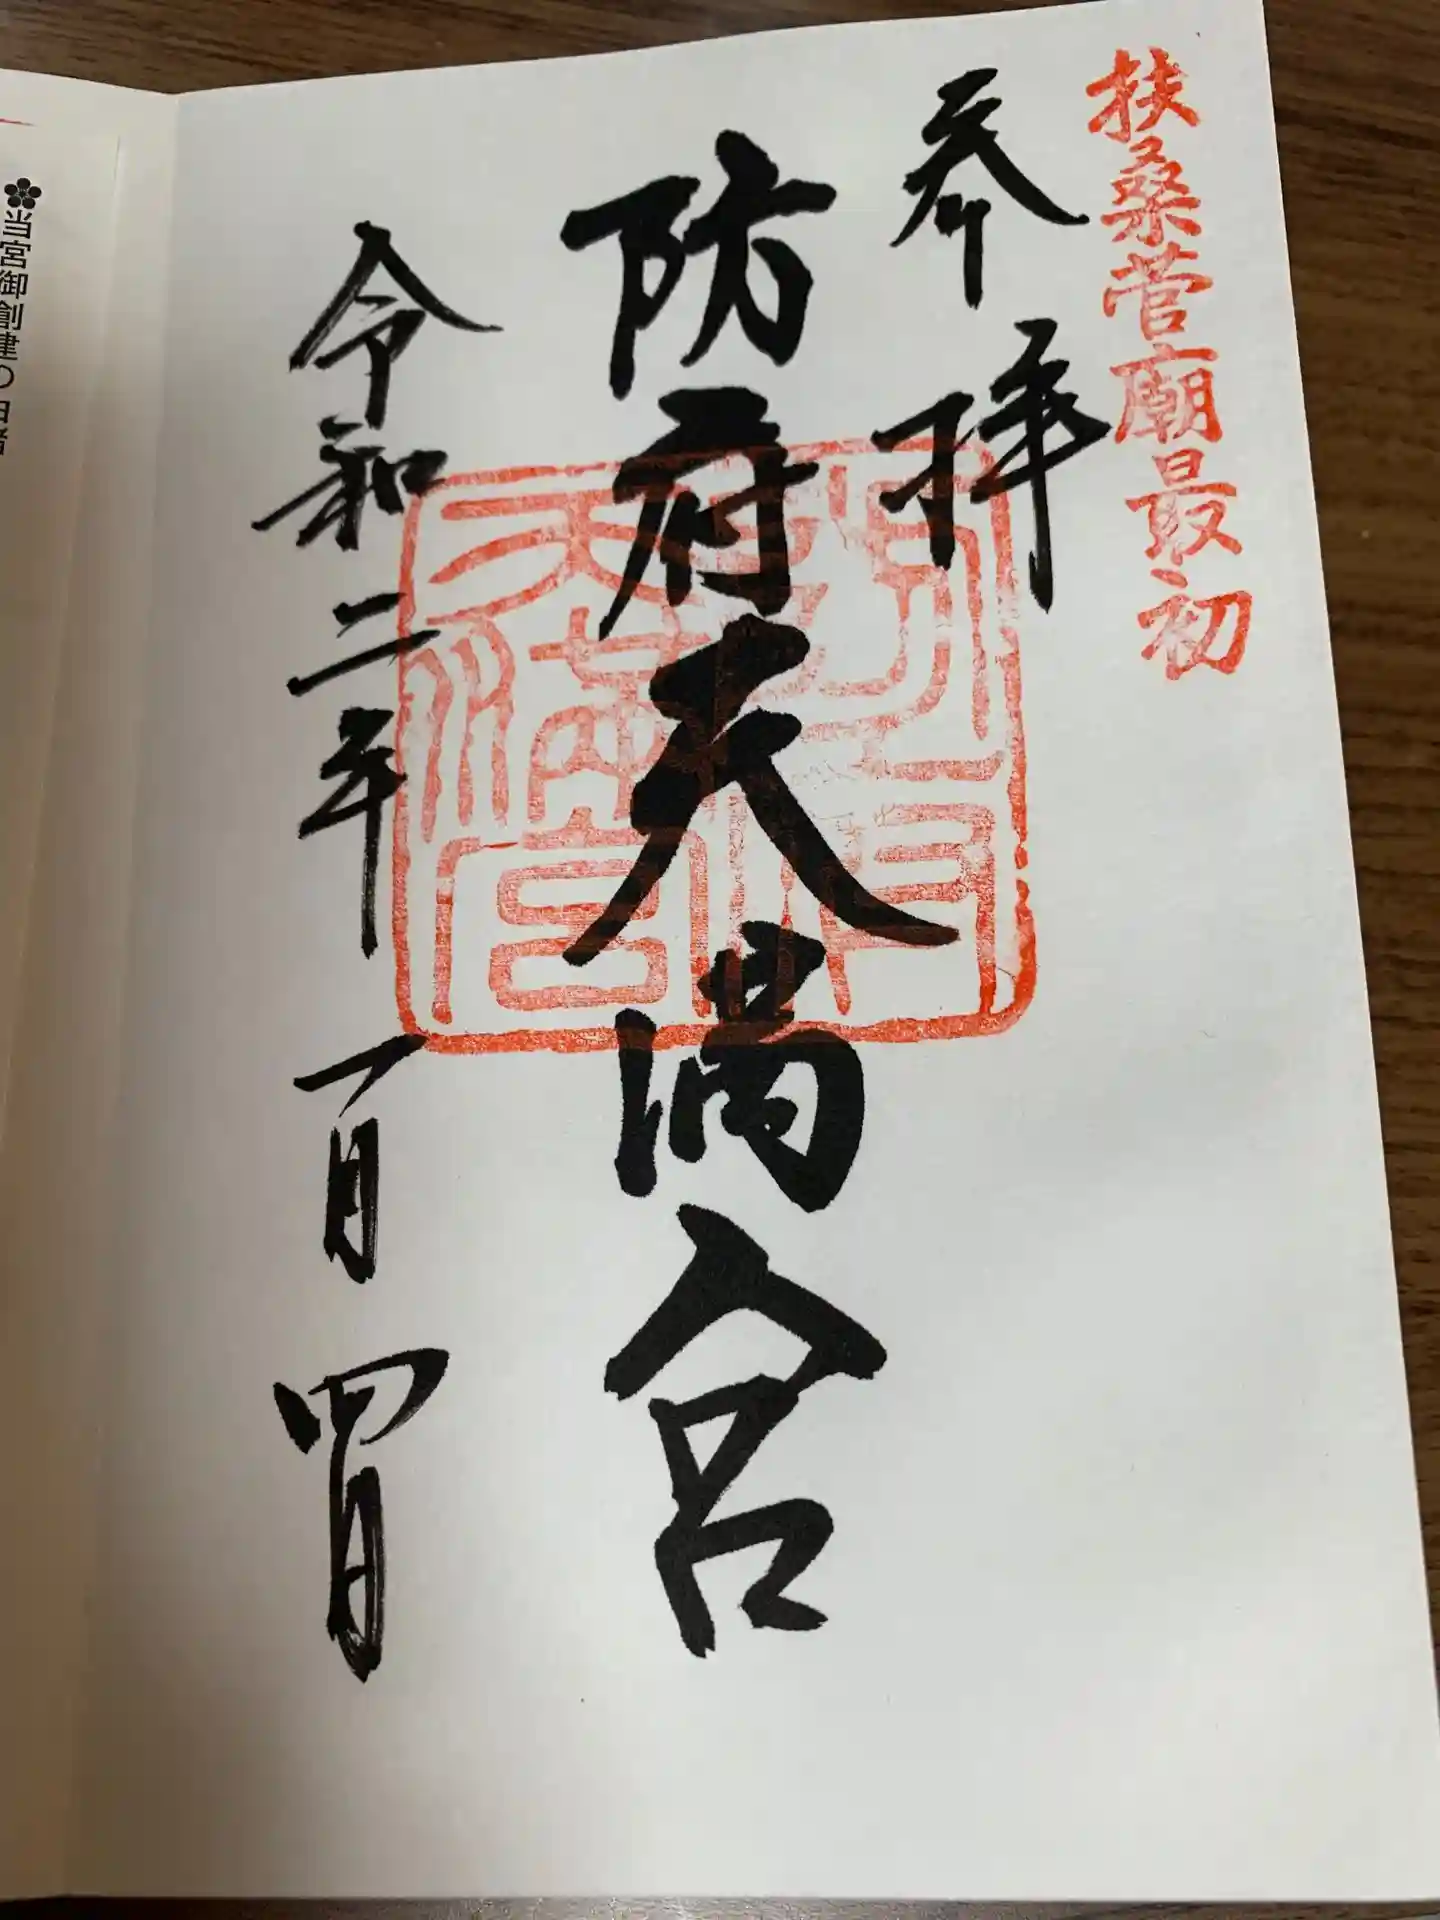 扶桑菅廟最初
参拝
防府天満宮
令和二年一月四日
防府天満宮
当宮御創建の由緒